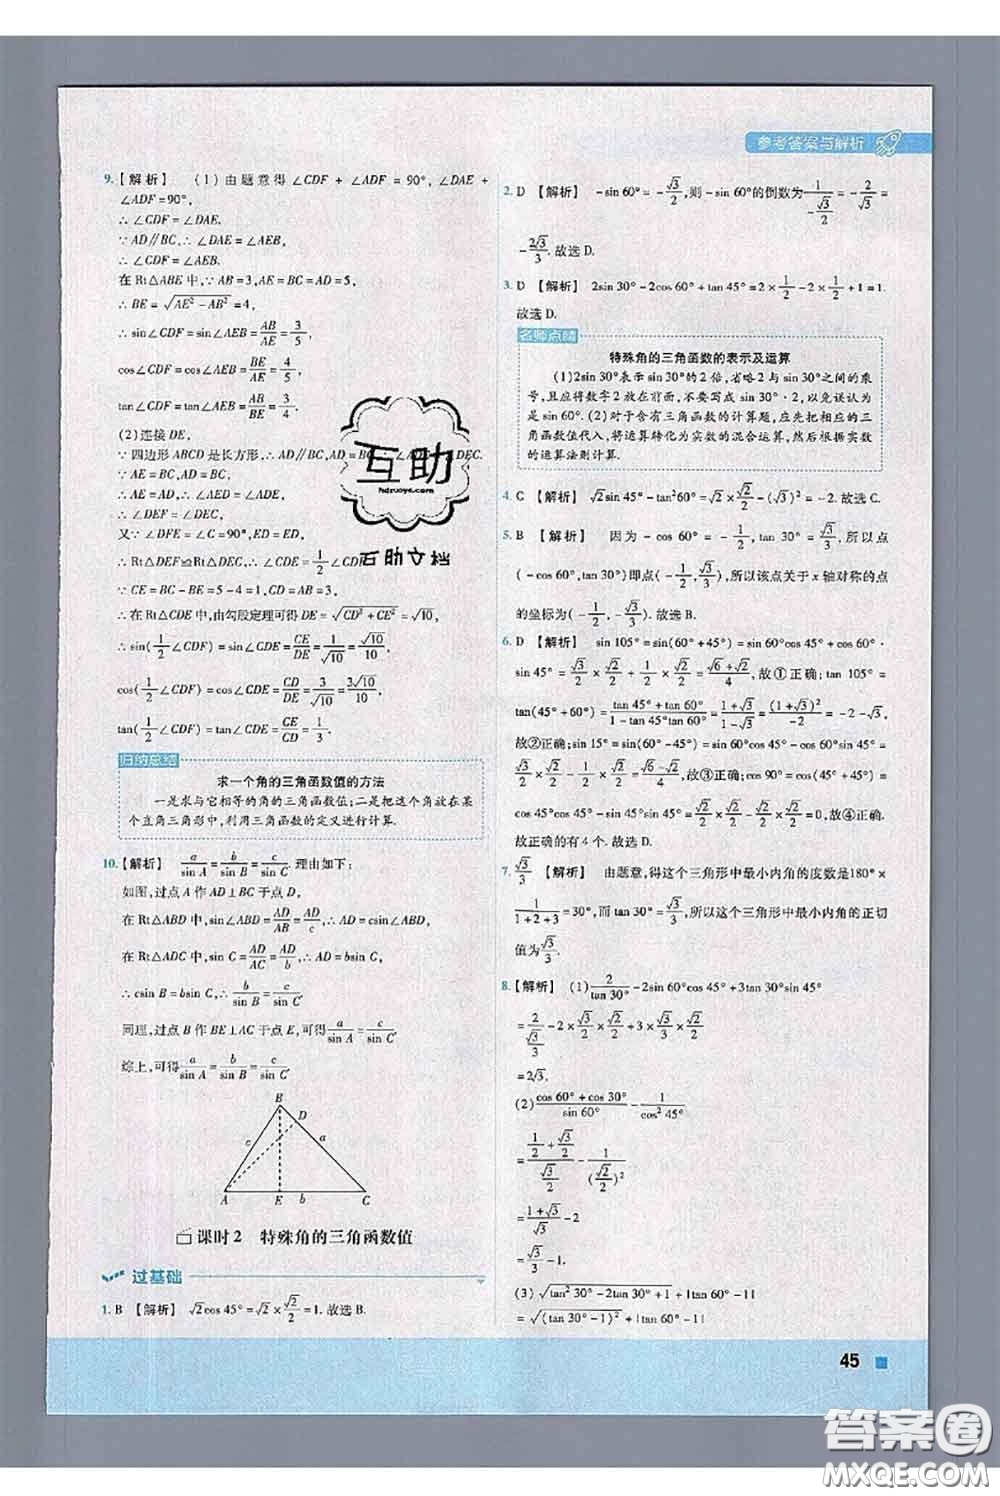 参考答案与解析
9.【解析】 (1)由题意得∠CDF + ∠ADF = 90°, ∠DAE +
∠ADF = 90°,
∴ ∠CDF = ∠DAE.
∵ AD∥BC, ∴ ∠DAE = ∠AEB,
∴ ∠CDF = ∠AEB.
在 Rt△ABE 中, ∵ AB = 3, AE = BC = AD = 5,
∴ BE = √(AE² − AB²) = 4,
∴ sin∠CDF = sin∠AEB = AB/AE = 3/5,
cos∠CDF = cos∠AEB = BE/AE = 4/5,
tan∠CDF = tan∠AEB = AB/BE = 3/4.
(2)连接 DE,
∵ 四边形 ABCD 是长方形, ∴ AD∥BC, AD = BC, ∴ ∠ DEC.
∵ AE = BC, ∴ AE = BC,
∴ AE = AD, ∴ ∠AED = ∠ADE,
∴ ∠DEF = ∠DEC,
又∵ ∠DFE = ∠C = 90°, ED = ED,
∴ Rt△DEF≌Rt△DEC, ∴ ∠CDE = 1/2 ∠CDF
∵ CE = BC − BE = 5 − 4 = 1, CD = AB = 3,
∴ 在 Rt△CDE 中, 由勾股定理可得 DE = √(CD² + CE²) = √10,
∴ sin(1/2 ∠CDF) = sin∠CDE = CE/DE = 1/√10 = √10/10,
cos(1/2 ∠CDF) = cos∠CDE = CD/DE = 3/√10 = 3√10/10,
tan(1/2 ∠CDF) = tan∠CDE = CE/CD = 1/3.
归纳总结
求一个角的三角函数值的方法
一是求与它相等的角的三角函数值;二是把这个角放在某
个直角三角形中,利用三角函数的定义进行计算.
10.【解析】 a/sin A = b/sin B = c/sin C. 理由如下:
如图, 过点 A 作 AD⊥BC 于点 D,
在 Rt△ABD 中, sin∠ABD = AD/AB = AD/c, ∴ AD = csin∠ABD
在 Rt△ADC 中, sin C = AD/AC = AD/b, ∴ AD = bsin C,
∴ csin B = bsin C, ∴ b/sin B = c/sin C.
同理, 过点 B 作 BE⊥AC 于点 E, 可得 a/sin A = c/sin C.
综上, 可得 a/sin A = b/sin B = c/sin C.
B
D
c
a
A
E
b
C
课时2 特殊角的三角函数值
过基础
1. B 【解析】 √2cos 45° = √2 × √2/2 = 1. 故选 B.
2. D 【解析】 −sin 60° = −√3/2, 则 −sin 60°的倒数为 1/(−√3/2) = −2/√3 =
−2√3/3. 故选 D.
3. D 【解析】 2sin 30° − 2cos 60° + tan 45° = 2×1/2 − 2×1/2 + 1 = 1.
故选 D.
名师点睛
特殊角的三角函数的表示及运算
(1)2sin 30°表示 sin 30°的 2 倍, 省略 2 与 sin 30°之间的乘
号, 且应将数字 2 放在前面, 不要写成 sin 30°·2, 以免误认为
是 sin 60°. (2)对于含有三角函数的计算题, 应先把相应的三
角函数值代入, 将运算转化为实数的混合运算, 然后根据实数
的运算法则计算.
4. C 【解析】 √2sin 45° − tan²60° = √2 × √2/2 − (√3)² = −2. 故选 C.
5. B 【解析】 因为 −cos 60° = −1/2, tan 30° = √3/3, 所以点
(−cos 60°, tan 30°)即点(−1/2, √3/3), 所以该点关于 x 轴对称的点
的坐标为(−1/2, −√3/3). 故选 B.
6. D 【解析】 sin 105° = sin(60° + 45°) = sin 60°cos 45° + cos 60°·
sin 45° = √3/2 × √2/2 + 1/2 × √2/2 = (√6+√2)/4, 故①正确; tan 105° =
tan(45° + 60°) = (tan 45° + tan 60°)/(1 − tan 45°tan 60°) = (1+√3)/(1−√3) = (1+√3)²/−2 = −2−√3,
故②正确; sin 15° = sin(60° − 45°) = sin 60°cos 45° − cos 60°sin 45° =
√3/2 × √2/2 − 1/2 × √2/2 = (√6−√2)/4, 故③正确; cos 90° = cos(45° + 45°) =
cos 45°cos 45° − sin 45°sin 45° = √2/2 × √2/2 − √2/2 × √2/2 = 0, 故④正确.
故正确的有 4 个. 故选 D.
7. √3/3 【解析】 由题意, 得这个三角形中最小内角的度数是180° ×
1/(1+2+3) = 30°, 而 tan 30° = √3/3, 所以这个三角形中最小内角的正切
值为√3/3.
8.【解析】 (1) 2/tan 30° − 2sin 60°cos 45° + 3tan 30°sin 45°
= 2/(√3/3) − 2×√3/2×√2/2 + 3×√3/3×√2/2
= 2√3.
(2) (cos 60° + cos 30°)/sin 60° − 1/cos² 45°
= (1/2 + √3/2)/(√3/2) − 1/(√2/2)²
= (1+√3)/√3 − 2
= √3/3 − 1.
(3) √(tan² 30° − 2tan 30° + 1) + |tan 60° − 1|
= √((tan 30° − 1)²) + |tan 60° − 1|
互助
hdzuoye.com
互助文档
45
答案圈
MXQE.COM